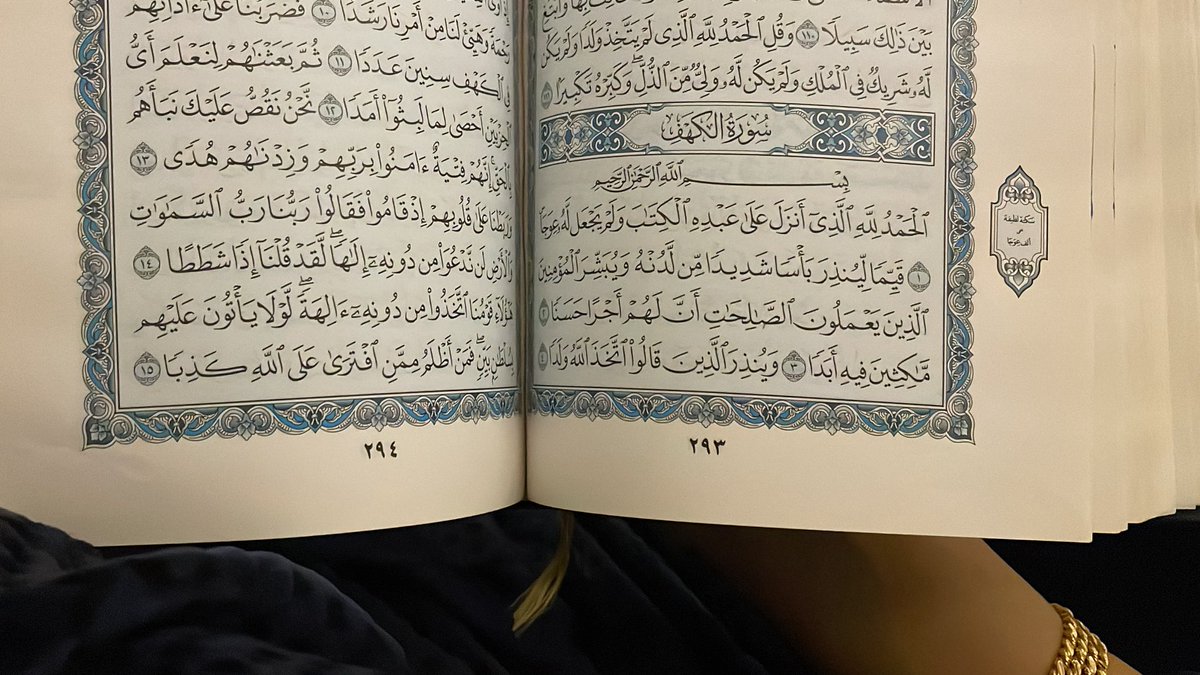 بَيْنَ ذَٰلِكَ سَبِيلًا ١١٠ وَقُلِ ٱلْحَمْدُ لِلَّهِ ٱلَّذِى لَمْ يَتَّخِذْ وَلَدًا وَلَمْ يَكُن
لَّهُۥ شَرِيكٌ فِى ٱلْمُلْكِ وَلَمْ يَكُن لَّهُۥ وَلِىٌّ مِّنَ ٱلذُّلِّ ۖ وَكَبِّرْهُ تَكْبِيرًۢا ١١١
سُورَةُ الكَهْفِ
بِسْمِ ٱللَّهِ ٱلرَّحْمَٰنِ ٱلرَّحِيمِ
ٱلْحَمْدُ لِلَّهِ ٱلَّذِىٓ أَنزَلَ عَلَىٰ عَبْدِهِ ٱلْكِتَٰبَ وَلَمْ يَجْعَل لَّهُۥ عِوَجَاۜ
١ قَيِّمًا لِّيُنذِرَ بَأْسًا شَدِيدًا مِّن لَّدُنْهُ وَيُبَشِّرَ ٱلْمُؤْمِنِينَ
ٱلَّذِينَ يَعْمَلُونَ ٱلصَّٰلِحَٰتِ أَنَّ لَهُمْ أَجْرًا حَسَنًا ٢
مَّٰكِثِينَ فِيهِ أَبَدًا ٣ وَيُنذِرَ ٱلَّذِينَ قَالُوا۟ ٱتَّخَذَ ٱللَّهُ وَلَدًا ٤
سكتة لطيفة
على
ألف عوجا
٢٩٣
رَحْمَةً وَهَيِّئْ لَنَا مِنْ أَمْرِنَا رَشَدًا ١٠ فَضَرَبْنَا عَلَىٰٓ ءَاذَانِهِمْ
فِى ٱلْكَهْفِ سِنِينَ عَدَدًا ١١ ثُمَّ بَعَثْنَٰهُمْ لِنَعْلَمَ أَىُّ
ٱلْحِزْبَيْنِ أَحْصَىٰ لِمَا لَبِثُوٓا۟ أَمَدًا ١٢ نَّحْنُ نَقُصُّ عَلَيْكَ نَبَأَهُم
بِٱلْحَقِّ ۚ إِنَّهُمْ فِتْيَةٌ ءَامَنُوا۟ بِرَبِّهِمْ وَزِدْنَٰهُمْ هُدًى ١٣
وَرَبَطْنَا عَلَىٰ قُلُوبِهِمْ إِذْ قَامُوا۟ فَقَالُوا۟ رَبُّنَا رَبُّ ٱلسَّمَٰوَٰتِ
وَٱلْأَرْضِ لَن نَّدْعُوَا۟ مِن دُونِهِۦٓ إِلَٰهًا ۖ لَّقَدْ قُلْنَآ إِذًا شَطَطًا ١٤
هَٰٓؤُلَآءِ قَوْمُنَا ٱتَّخَذُوا۟ مِن دُونِهِۦٓ ءَالِهَةً ۖ لَّوْلَا يَأْتُونَ عَلَيْهِم
بِسُلْطَٰنٍۭ بَيِّنٍ ۖ فَمَنْ أَظْلَمُ مِمَّنِ ٱفْتَرَىٰ عَلَى ٱللَّهِ كَذِبًا ١٥
٢٩٤